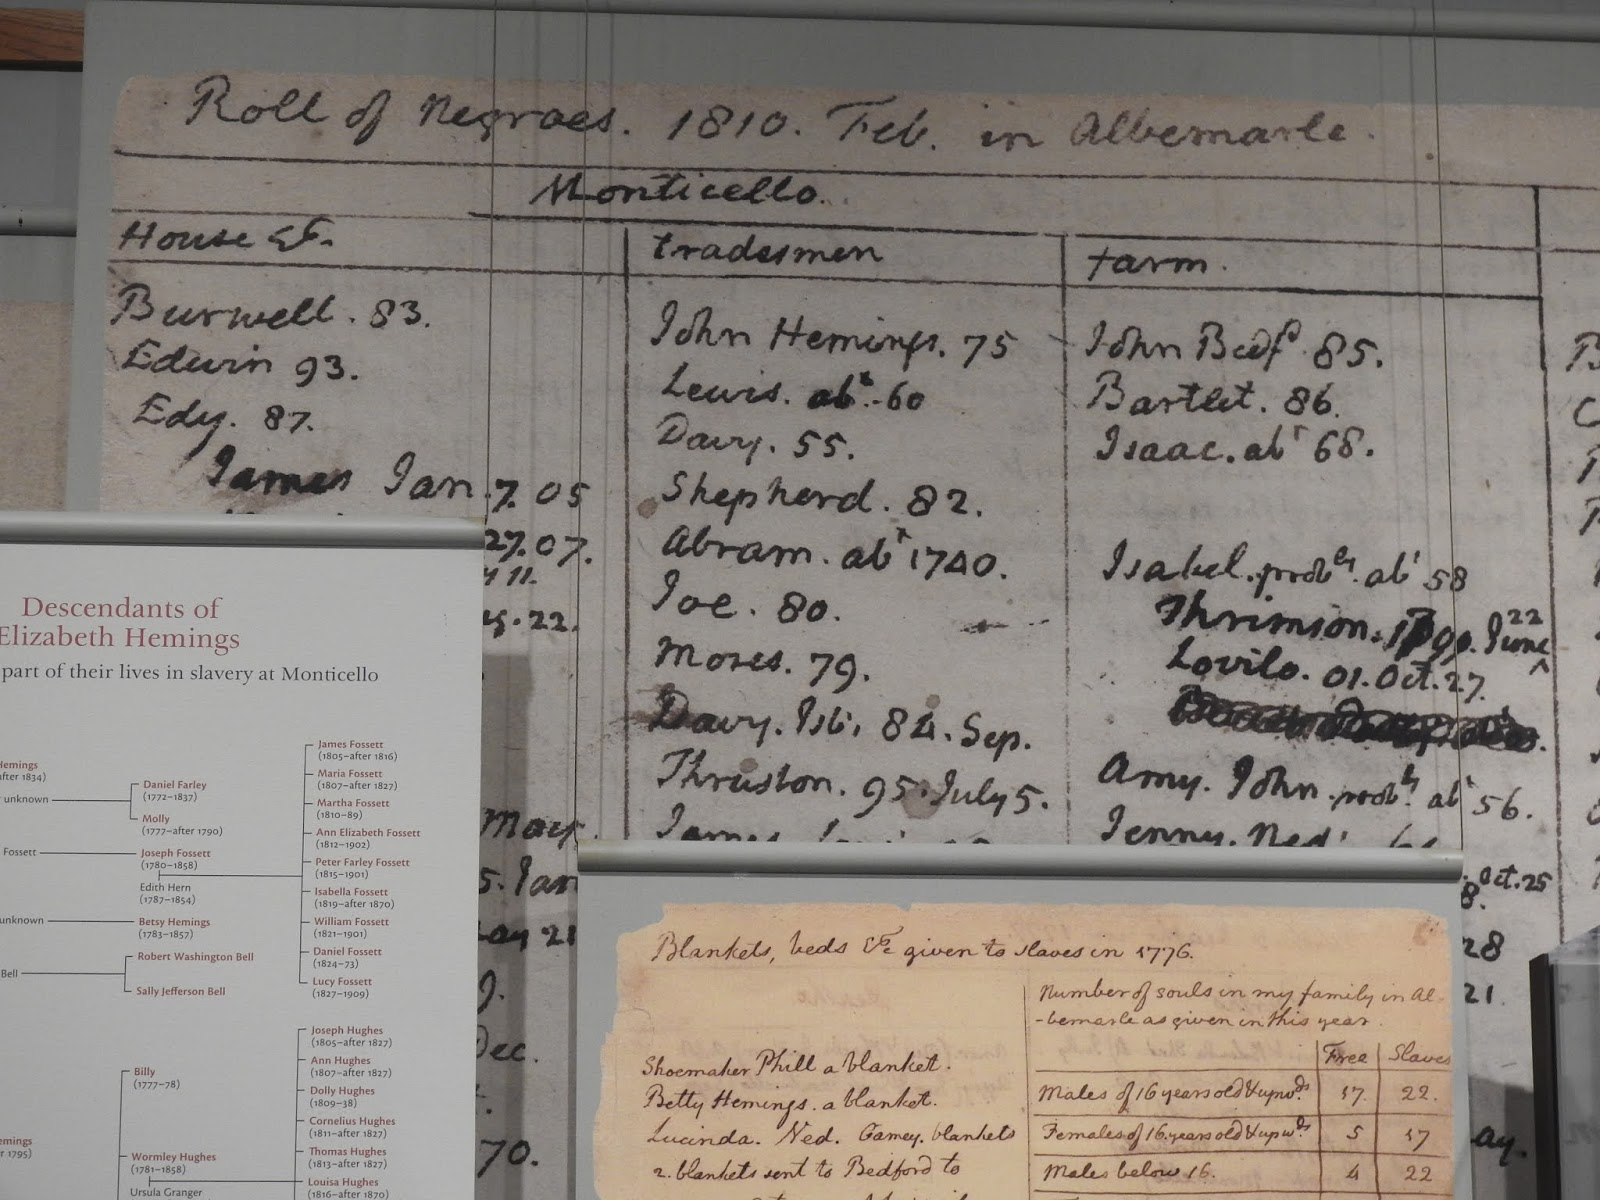 Roll of Negroes. 1810. Feb. in Albemarle.
Monticello.
House &c.
Burwell. 83.
Edwin 93.
Edy. 87.
James Jan. 7. 05
27.07.
11.
22.
May.
5. Jan
21
Dec.
70.
tradesmen
John Hemings. 75
Lewis. abt. 60
Davy. 55.
Shepherd. 82.
Abram. abt 1740.
Joe. 80.
Moses. 79.
Davy. Isb. 84. Sep.
Thruston. 95. July 5.
James
farm.
John Bedf. 85.
Bartlet. 86.
Isaac. abt 68.
Isabel. probly. abt 58
Thrimson. 1799. June 22
Lovilo. 01. Oct. 27.
Amy. John. probly. abt 56.
Jenny. Ned's
Oct. 25
8.
28
21.
ay.
Descendants of
Elizabeth Hemings
part of their lives in slavery at Monticello
Hemings
after 1834)
unknown
Daniel Farley
(1772–1837)
Molly
(1777–after 1790)
Fossett
Joseph Fossett
(1780–1858)
Edith Hern
(1787–1854)
unknown
Betsy Hemings
(1783–1857)
Bell
Robert Washington Bell
Sally Jefferson Bell
James Fossett
(1805–after 1816)
Maria Fossett
(1807–after 1827)
Martha Fossett
(1810–89)
Ann Elizabeth Fossett
(1812–1902)
Peter Farley Fossett
(1815–1901)
Isabella Fossett
(1819–after 1870)
William Fossett
(1821–1901)
Daniel Fossett
(1824–73)
Lucy Fossett
(1827–1909)
Billy
(1777–78)
emings
er 1795)
Wormley Hughes
(1781–1858)
Ursula Granger
Joseph Hughes
(1805–after 1827)
Ann Hughes
(1807–after 1827)
Dolly Hughes
(1809–38)
Cornelius Hughes
(1811–after 1827)
Thomas Hughes
(1813–after 1827)
Louisa Hughes
(1816–after 1870)
Blankets, beds &c given to slaves in 1776.
Shoemaker Phill a blanket.
Betty Hemings. a blanket.
Lucinda. Ned. Gamey. blankets
2. blankets sent to Bedford to
Number of souls in my family in Al-
-bemarle as given in this year.
Free Slaves
Males of 16 years old & upwds 17. 22.
Females of 16. years old & upwds 5 17
Males below 16. 4 22